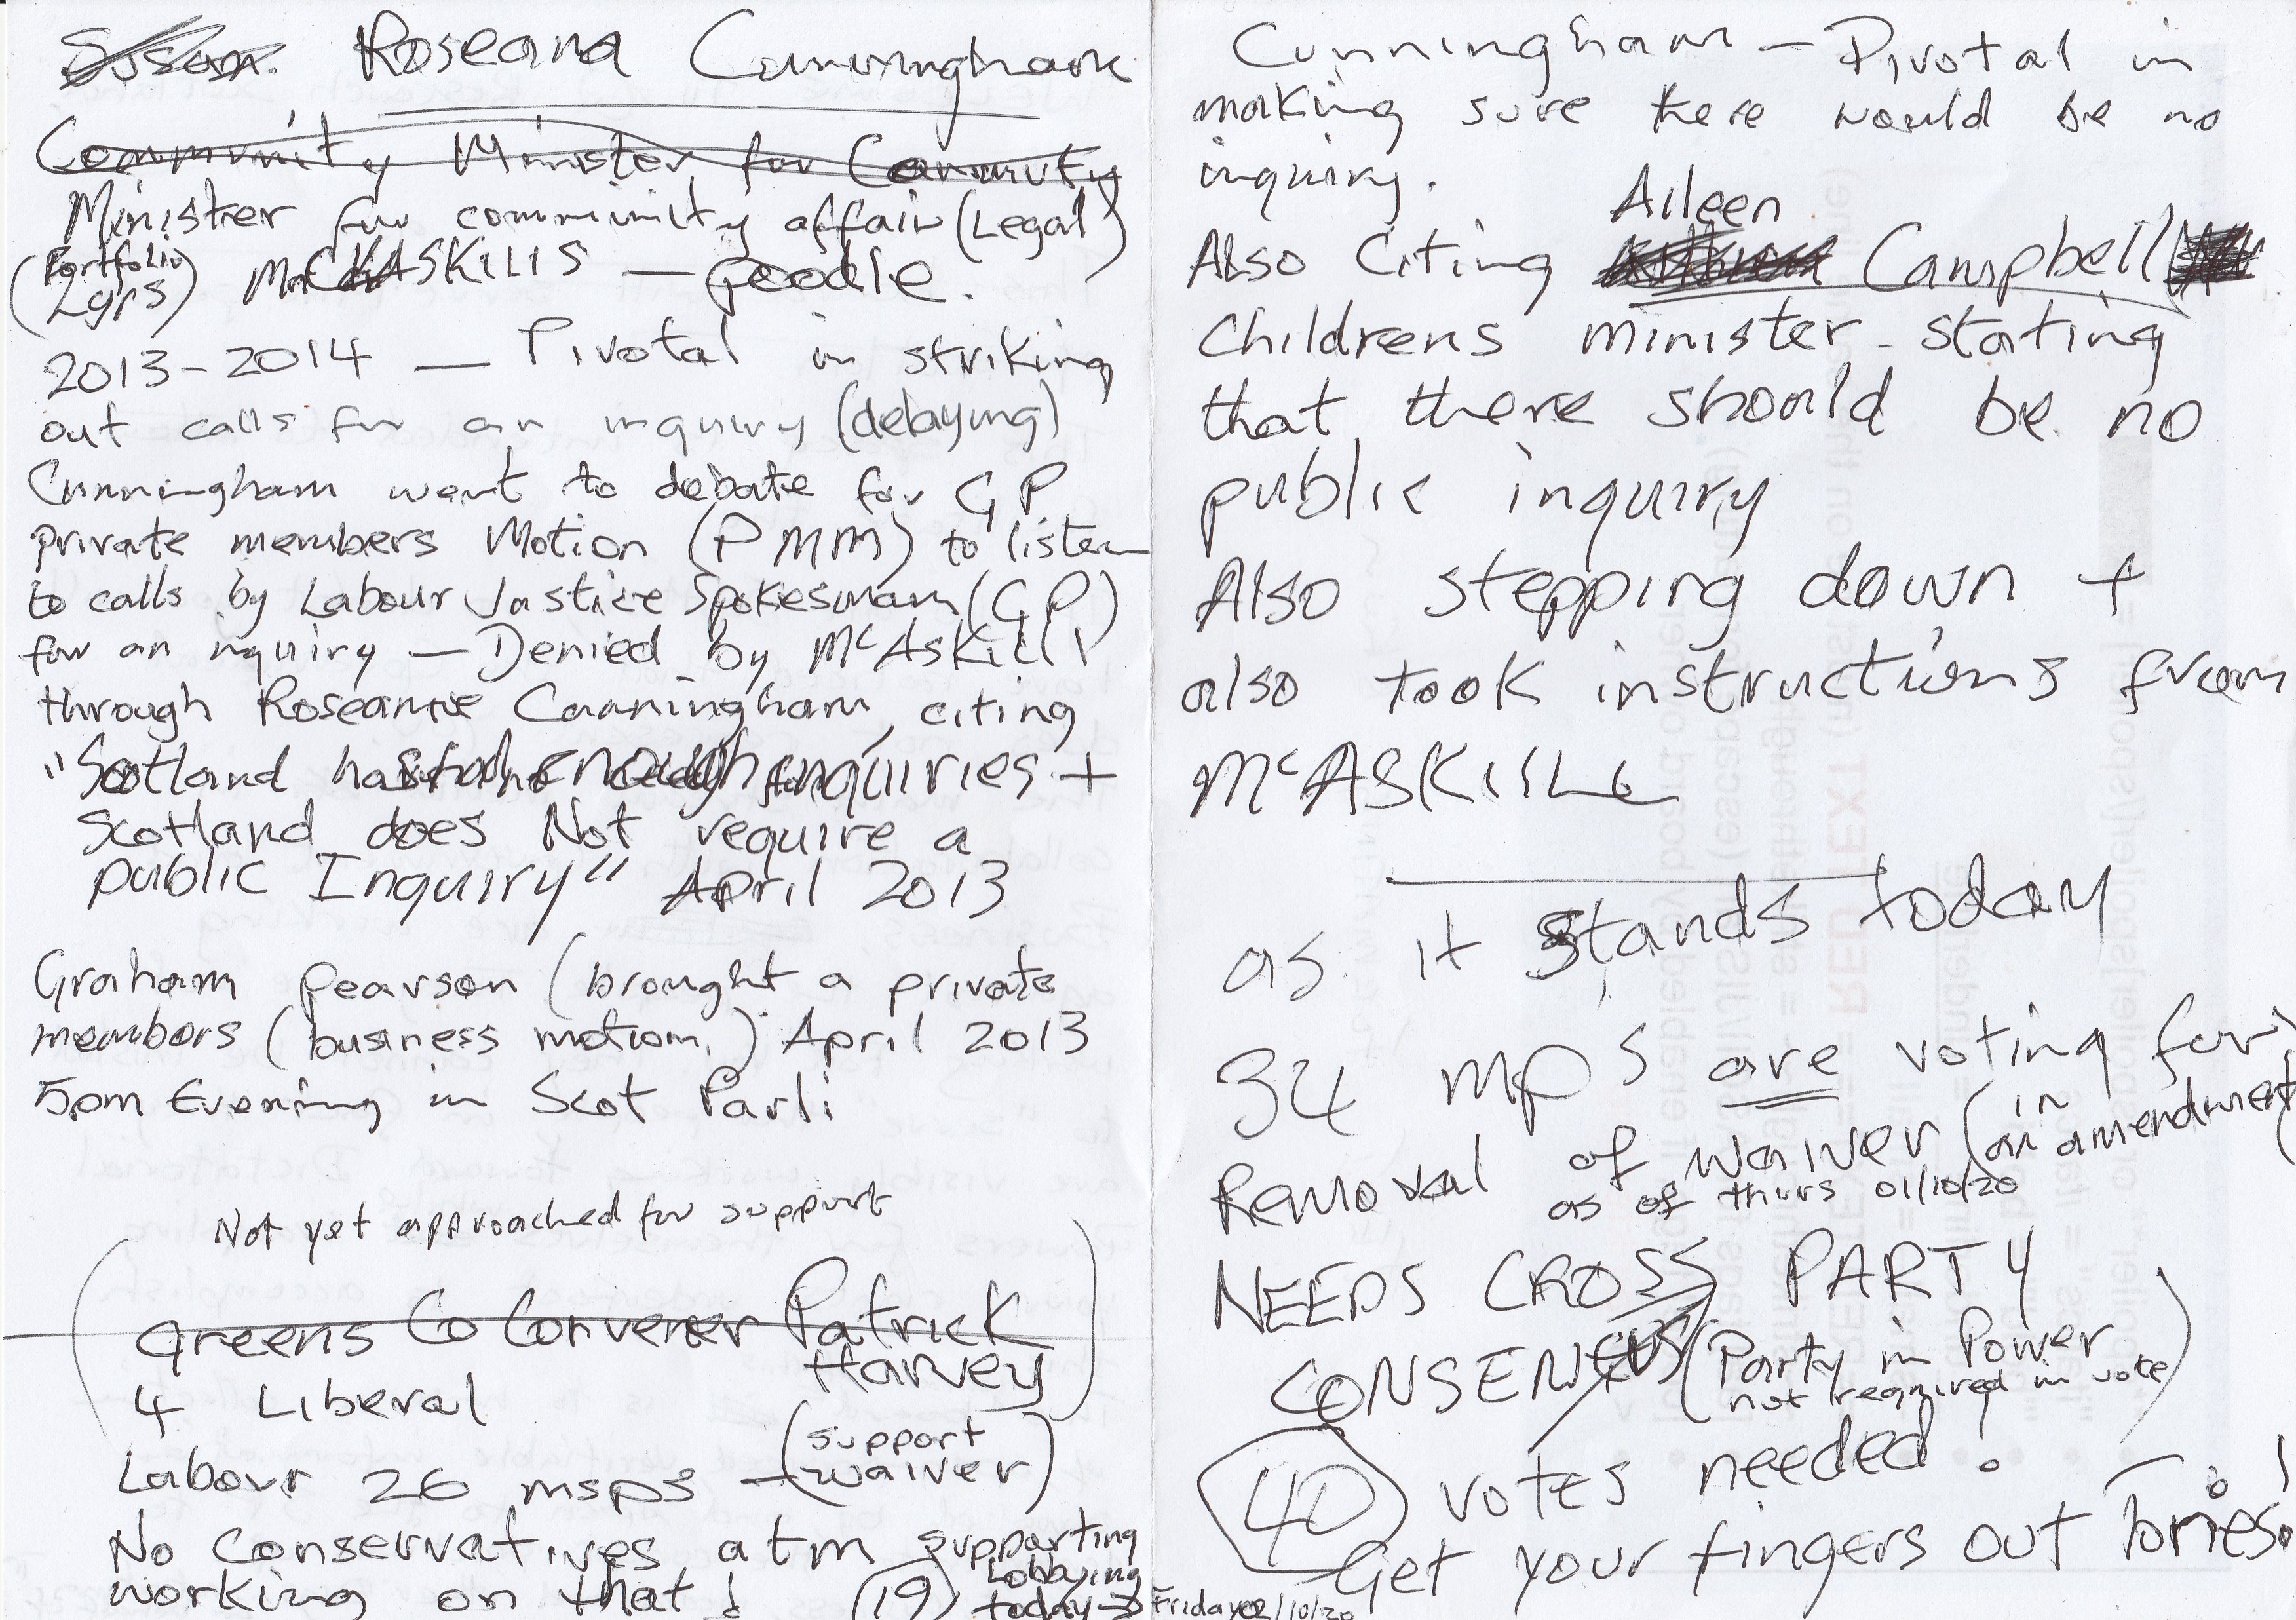 Susan. Roseana Cunningham
Community Minister for Community
Minister for community affair (Legal)
(Portfolio 2yrs) McASKILLS — poodle.
2013-2014 — Pivotal in striking
out calls for an inquiry (delaying)
Cunningham went to debate for GP
private members Motion (PMM) to listen
to calls by Labour Justice Spokesman (GP)
for an inquiry — Denied by McASKILL
through Roseanne Cunningham, citing
"Scotland has had enough inquiries +
Scotland does Not require a
public Inquiry" April 2013
Graham Pearson (brought a private
members (business motion.) April 2013
5pm Evening in Scot Parli
Not yet approached for support
(Greens Co Convener Patrick
Harvey)
4 Liberal
Labour 26 msps — (support
waiver)
No Conservatives atm supporting
working on that! (19) Lobbying
today → Friday 02/10/20
Cunningham — Pivotal in
making sure there would be no
inquiry.
Aileen
Also Citing Campbell
Childrens minister - stating
that there should be no
public inquiry
Also stepping down +
also took instructions from
McASKILL
as it stands today
34 mps are voting for
Removal of waiver (in
an amendment)
as of thurs 01/10/20
NEEDS CROSS PARTY
CONSENSUS (Party in Power
not required in vote)
40 votes needed!
Get your fingers out Tories!